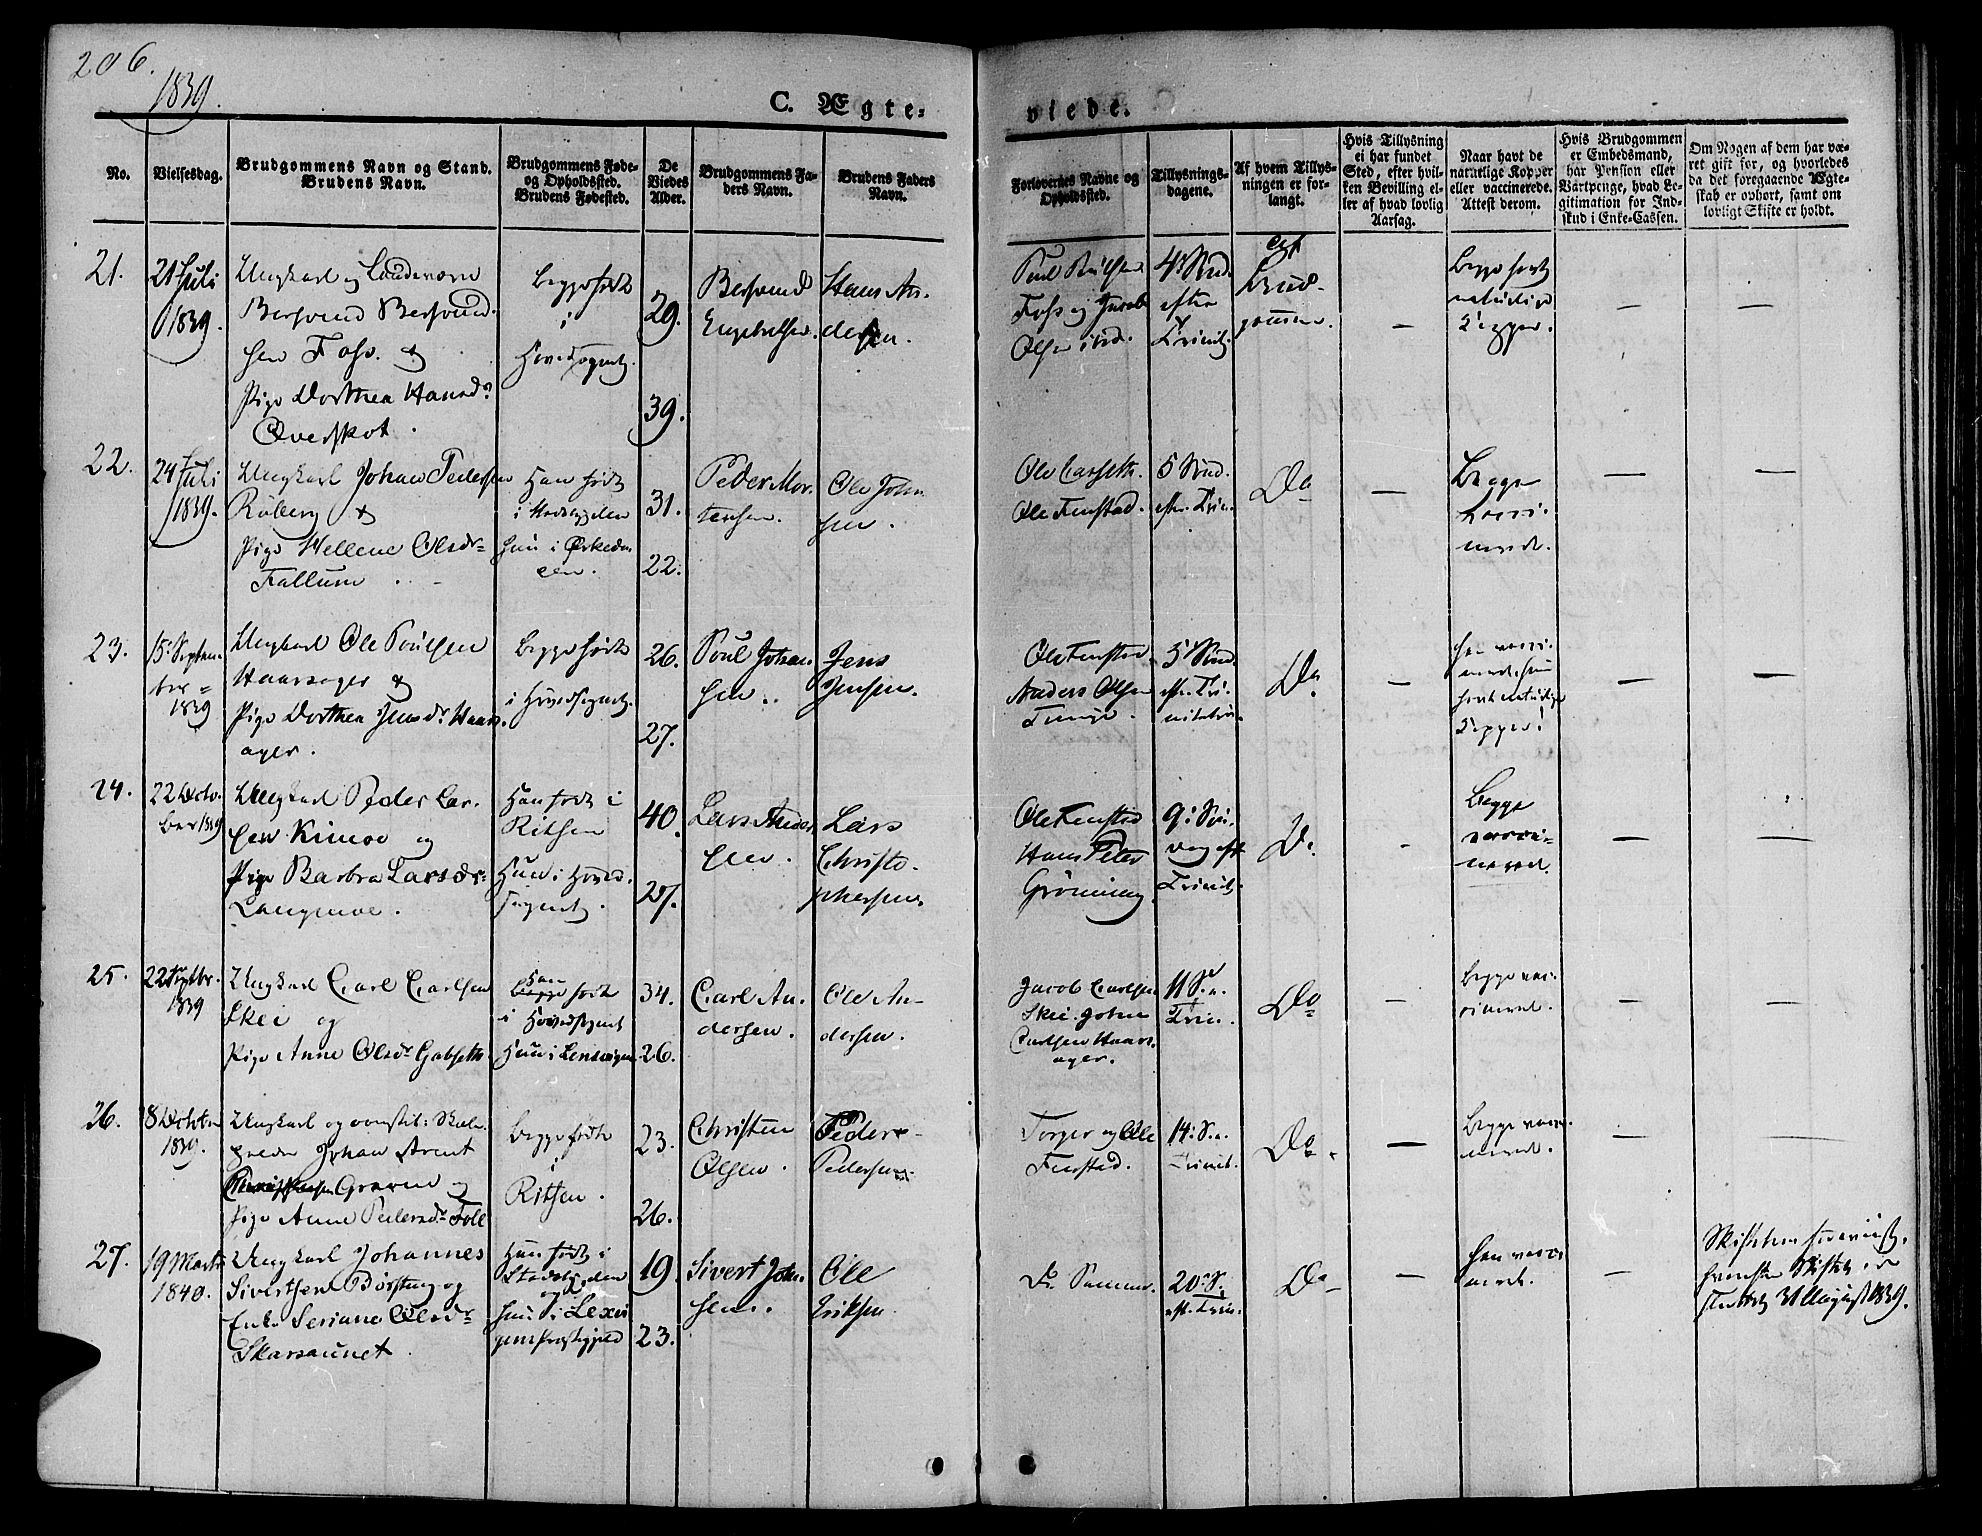 206.
1839.
C. Ægte-
viede.
No.
Vielsesdag.
Brudgommens Navn og Stand.
Brudens Navn.
Brudgommens Føde-
og Opholdssted.
Brudens Fødested.
De
Viedes
Alder.
Brudgommens Fa-
ders Navn.
Brudens Faders
Navn.
Forlovernes Navne og
Opholdssted.
Tillysnings-
dagene.
Af hvem Tillys-
ningen er for-
langt.
Hvis Tillysning
ei har fundet
Sted, efter hvil-
ken Bevilling el-
ler af hvad lovlig
Aarsag.
Naar havt de
naturlige Kopper
eller vaccinerede.
Attest derom.
Hvis Brudgommen
er Embedsmand,
har Pension eller
Vartpenge, hvad Le-
gitimation for Ind-
skud i Enke-Cassen.
Om Nogen af dem har væ-
ret gift før, og hvorledes
da det foregaaende Ægte-
skab er ophørt, samt om
lovligt Skifte er holdt.
21.
21 Juli
1839.
Ungkarl og
Bersvend Bersvend-
sen Foss. og
Pige Dorthea Hansdr
Øverskot.
Begge födte
i
Hovedsognet.
29.
39.
Bersvend
Engebretsen.
Hans An-
dersen.
Poul Poulsen
Foss og Jacob
Olsen ibd.
4 Sönd.
efter
Trinit.
Brud-
gommen.
–
Begge havt
naturlige
Kopper.
–
–
22.
24 Juli
1839.
Ungkarl Johan Pedersen
Röberg &
Pige Hellene Olsdr
Fallum
Han födt
i
Hun i Örkeda-
len.
31.
22.
Peder Mor-
tensen.
Ole John-
sen.
Ole
Ole Fenstad.
5 Sönd.
eft. Trin.
Do
–
Begge
vacci-
nered.
–
–
23.
15. Septem-
ber
1839
Ungkarl Ole Poulsen
Haarsager &
Pige Dorthea Jensdr Haars-
ager.
Begge födte
i Hovedsognet.
26.
27.
Poul Johan-
sen.
Jens
Jensen.
Ole Fenstad
Anders Olsen
5 Sönd.
eft. Tri-
nitatis.
Do
–
han vacci-
neret, hun
havt naturlige
Kopper.
–
–
24.
22 Octo-
ber 1839
Ungkarl Peder Lar-
sen Kimoe og
Pige Barbra Larsdr
Langmoe.
Han födt i
Ritsen
Hun i Hoved-
sognet.
40.
27.
Lars Ander-
sen.
Lars
Christo-
phersen.
Ole Fenstad
Hans Peter
Gröning
9. Sön-
dag eft.
Trinit.
Do
-
Begge
vacci-
nered.
–
–
25.
22 Septbr.
1839
Ungkarl Carl Carlsen
Skei og
Pige Anne Olsdr Gabseth
Han
Begge födt
i Hovedsognet
Hun i Lensvigen
34.
26.
Carl An-
dersen.
Ole An-
dersen.
Jacob Carlsen
Skei. Johan
Carlsen Haars-
ager.
11 S. e.
Trin.
Do
–
Begge vac-
cineret.
–
–
26.
8 October
1839.
Ungkarl og constit: Skole-
Johan Arent
Graven og
Pige Anne Pedersdr Foll
Begge födte
i
Ritsen.
23.
26.
Christen
Olsen.
Peder
Pedersen
Torger og Ole
Fenstad.
14. S. e.
Trinit.
Do
–
Begge vacci-
neret.
–
–
27.
19 Marts
1840.
Ungkarl Johannes
Sivertsen Börsteng og
Enke Seriane Olsdr
Skarsaunet.
Han födt i
Stadsbygden
og
hun i Lexvi-
gens Præstegjeld
19.
23.
Sivert John-
sen.
Ole
Eriksen.
De Samme.
20. S.
eft. Trin.
Do
–
han vacci-
neret.
–
31 August 1839.